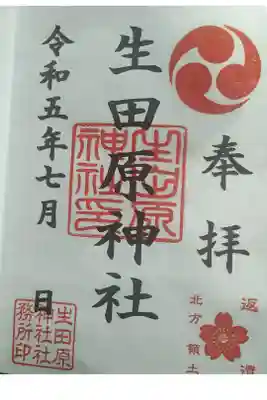 奉拝
生田原神社
令和五年七月 日
生田原
神社印
生田原
神社社
務所印
北方領土